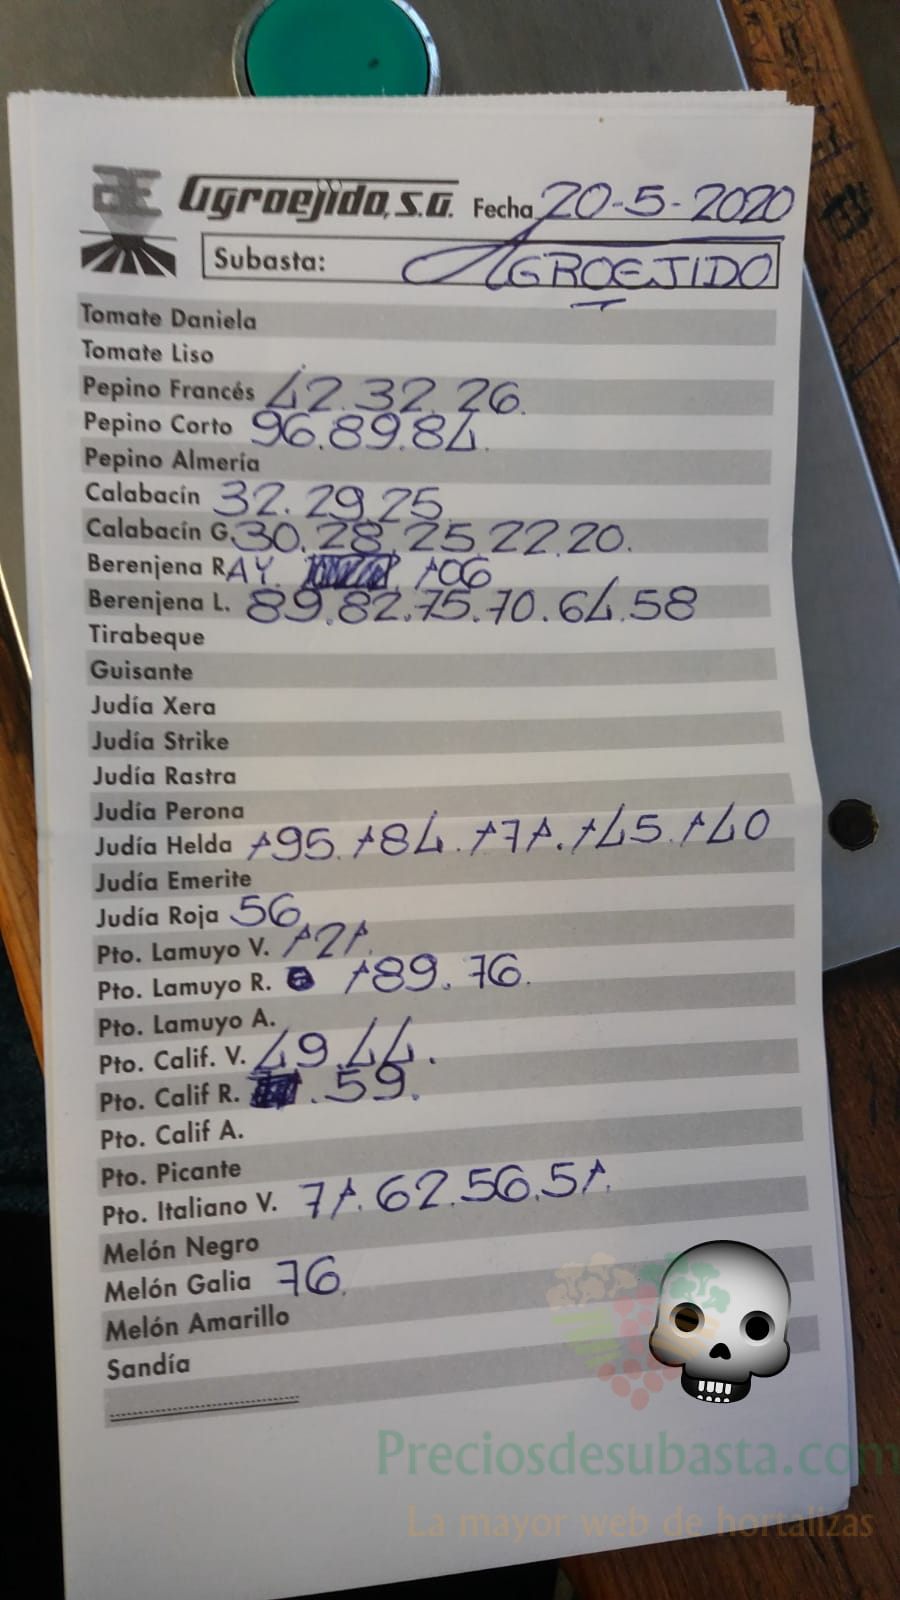 Agroejido, S.A. Fecha 20-5-2020
Subasta: AGROEJIDO
Tomate Daniela
Tomate Liso
Pepino Francés 42.32.26.
Pepino Corto 96.89.84.
Pepino Almería
Calabacín 32.29.25.
Calabacín G. 30.28.25.22.20.
Berenjena RAY. 106
Berenjena L. 89.82.75.70.64.58
Tirabeque
Guisante
Judía Xera
Judía Strike
Judía Rastra
Judía Perona
Judía Helda 195.184.171.145.140
Judía Emerite
Judía Roja 56
Pto. Lamuyo V. 121.
Pto. Lamuyo R. 189.76.
Pto. Lamuyo A.
Pto. Calif. V. 49.44.
Pto. Calif R. .59.
Pto. Calif A.
Pto. Picante
Pto. Italiano V. 71.62.56.51.
Melón Negro
Melón Galia 76.
Melón Amarillo
Sandía
Preciosdesubasta.com
La mayor web de hortalizas